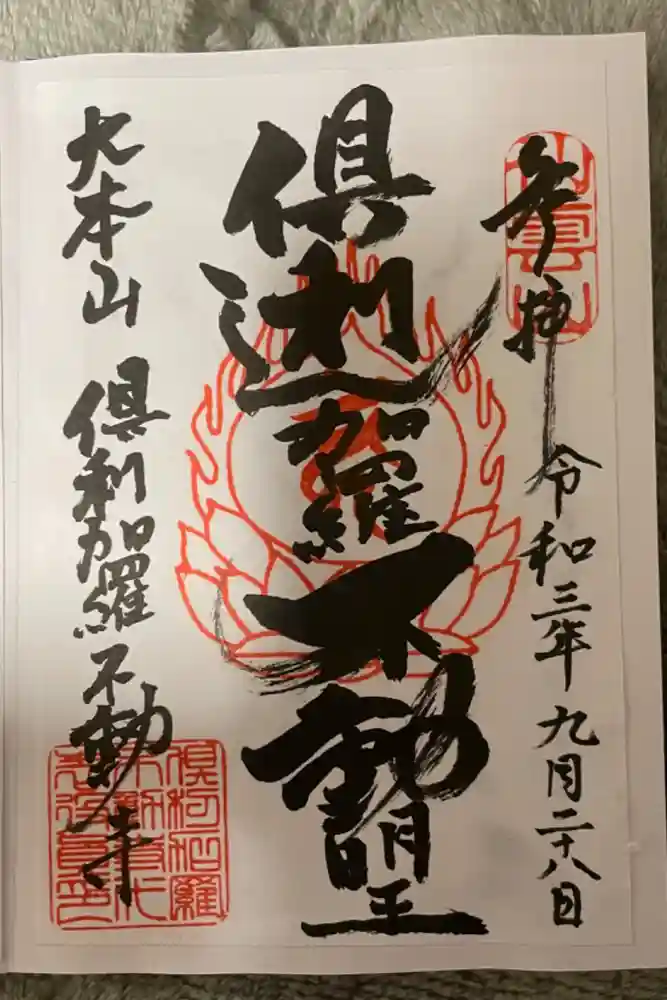 参拝
令和三年九月二十八日
倶利迦羅不動明王
大本山
倶利加羅不動寺